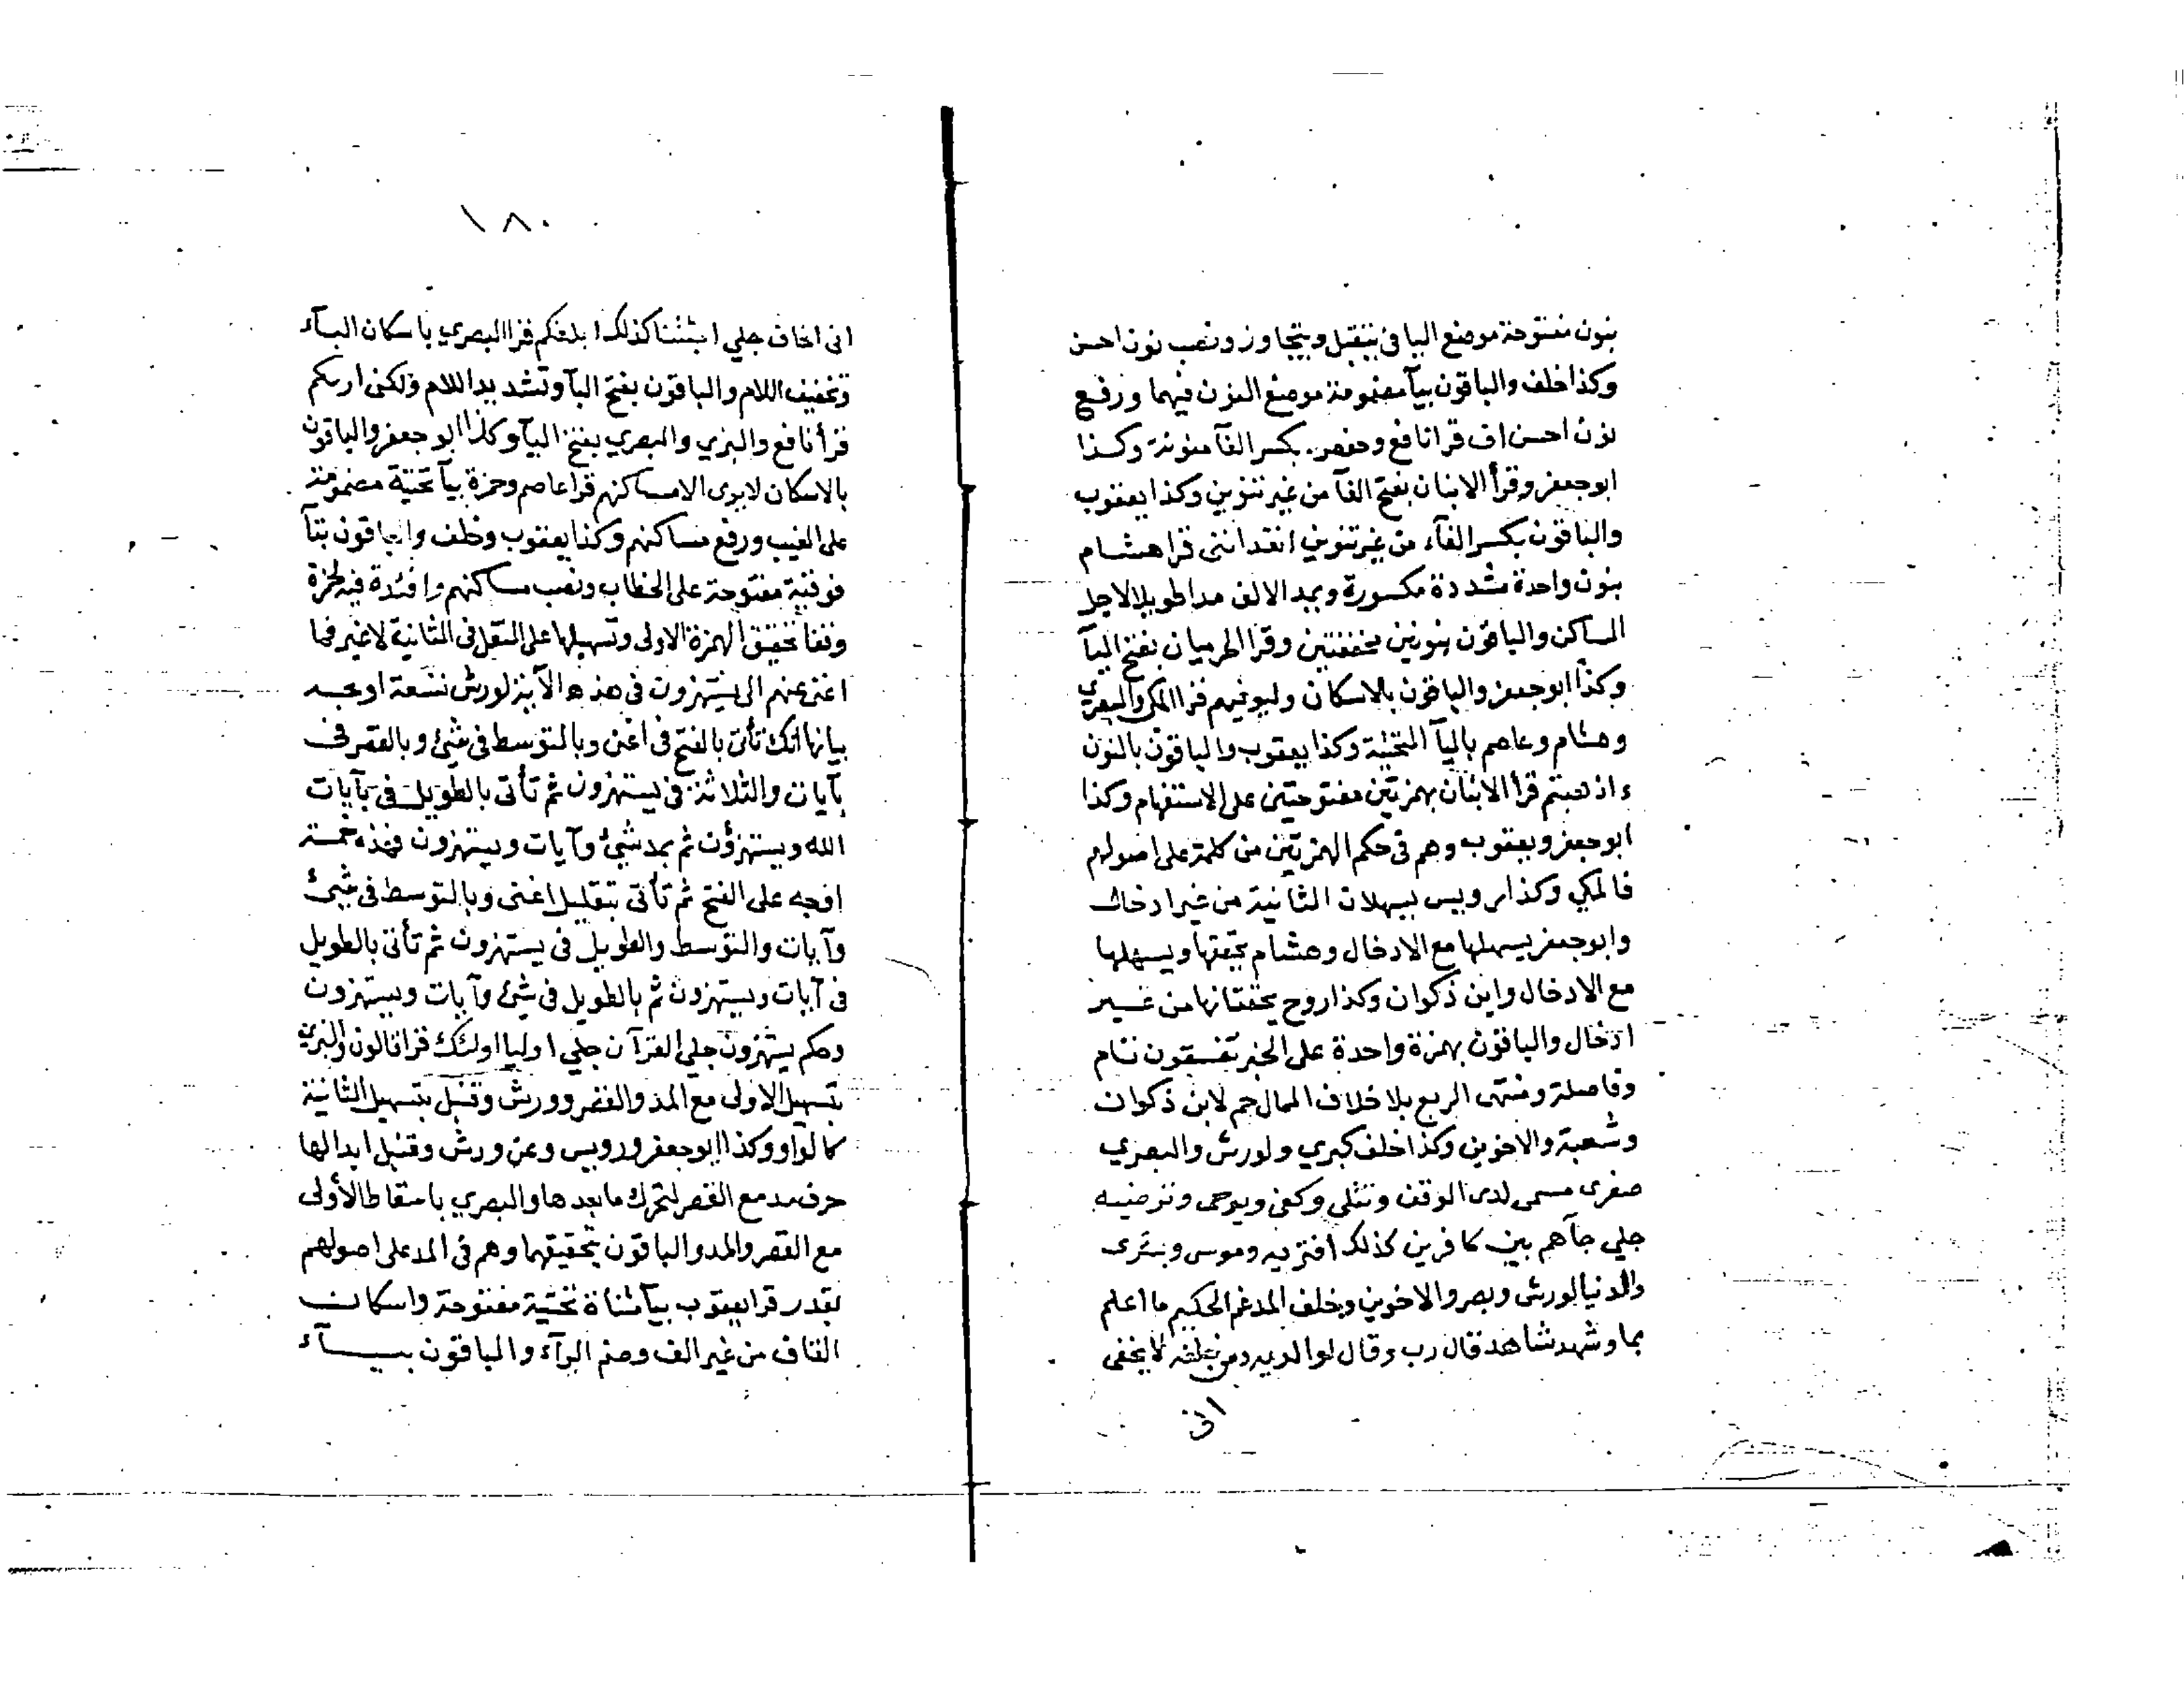 بنون مفتوحة موضع اليا في يتقبل ويتجاوز ونصب نون احسن
وكذا خلف والباقون بيآ مضمومة موضع النون فيهما ورفع
نون احسن اف قرا نافع وحفص بكسر الفآ منونة وكذا
ابو جعفر وقرأ الابنان بفتح الفآ من غير تنوين وكذا يعقوب
والباقون بكسر الفآء من غير تنوين اتعدانني قرا هشام
بنون واحدة مشددة مكسورة ويمد الالف مدا طويلا لاجل
الساكن والباقون بنونين مخففتين وقرا الحرميان بفتح اليآ
وكذا ابو جعفر والباقون بالاسكان وليوفيهم قرا المكي والبصري
وهشام وعاصم باليآ التحتية وكذا يعقوب والباقون بالنون
ءاذهبتم قرأ الابنان بهمزتين مفتوحتين على الاستفهام وكذا
ابو جعفر ويعقوب وهم في حكم الهمزتين من كلمة على اصولهم
فالمكي وكذا رويس يسهلان الثانية من غير ادخال
وابو جعفر يسهلها مع الادخال وهشام يحققها ويسهلها
مع الادخال وابن ذكوان وكذا روح يحققانها من غير
ادخال والباقون بهمزة واحدة على الخبر تفسقون تام
وفاصلة ومنتهى الربع بلا خلاف الممال حم لابن ذكوان
وشعبة والاخوين وكذا خلف كبري ولورش والبصري
صغرى مسمى لدى الوقف وتتلى وكفى ويوحى وترضيه
جلي جآهم بين كافرين كذلك افتريه وموسى وبشرى
والدنيا لورش وبصر والاخوين وخلف المدغم الحكيم ما اعلم
بما وشهد شاهد قال رب وقال لوالديه ومن خلفه لا يخفى
اني
١٨٠
اني اخاف جلي اجئتنا كذلك ابلغكم قرا البصري باسكان البآء
وتخفيف اللام والباقون بفتح البآ وتشديد اللام ولكني اريكم
قرأ نافع والبزي والبصري بفتح اليآ وكذا ابو جعفر والباقون
بالاسكان لا يرى الا مساكنهم قرا عاصم وحمزة بيآ تحتية مضمومة
على الغيب ورفع مساكنهم وكذا يعقوب وخلف والباقون بتآ
فوقية مفتوحة على الخطاب ونصب مساكنهم وافئدة فيه لحمزة
وقفا تحقيق الهمزة الاولى وتسهيلها على النقل في الثانية لا غير فما
اغنى عنهم الى يستهزون في هذه الآية لورش تسعة اوجه
بيانها انك تأتي بالفتح في اغنى وبالتوسط في شئ وبالقصر في
بآيات والثلاثة في يستهزون ثم تأتي بالطويل في بآيات
الله ويستهزؤن ثم بمد شئ وآيات ويستهزون فهذه خمسة
اوجه على الفتح ثم تأتي بتقليل اغنى وبالتوسط في شئ
وآيات والتوسط والطويل في يستهزون ثم تأتي بالطويل
في آيات ويستهزون ثم بالطويل في شئ وآيات ويستهزون
وحكم يستهزون جلي القرآن جلي اوليا اولئك قرا قالون والبزي
بتسهيل الاولى مع المد والقصر وورش وقنبل بتسهيل الثانية
كالواو وكذا ابو جعفر ورويس وعن ورش وقنبل ابدالها
حرف مد مع القصر لتحرك ما بعدها والبصري باسقاط الأولى
مع القصر والمد والباقون بتحقيقهما وهم في المد على اصولهم
بقدر قرا يعقوب بيآ مثناة تحتية مفتوحة واسكان
القاف من غير الف وضم الرآء والباقون ببآء